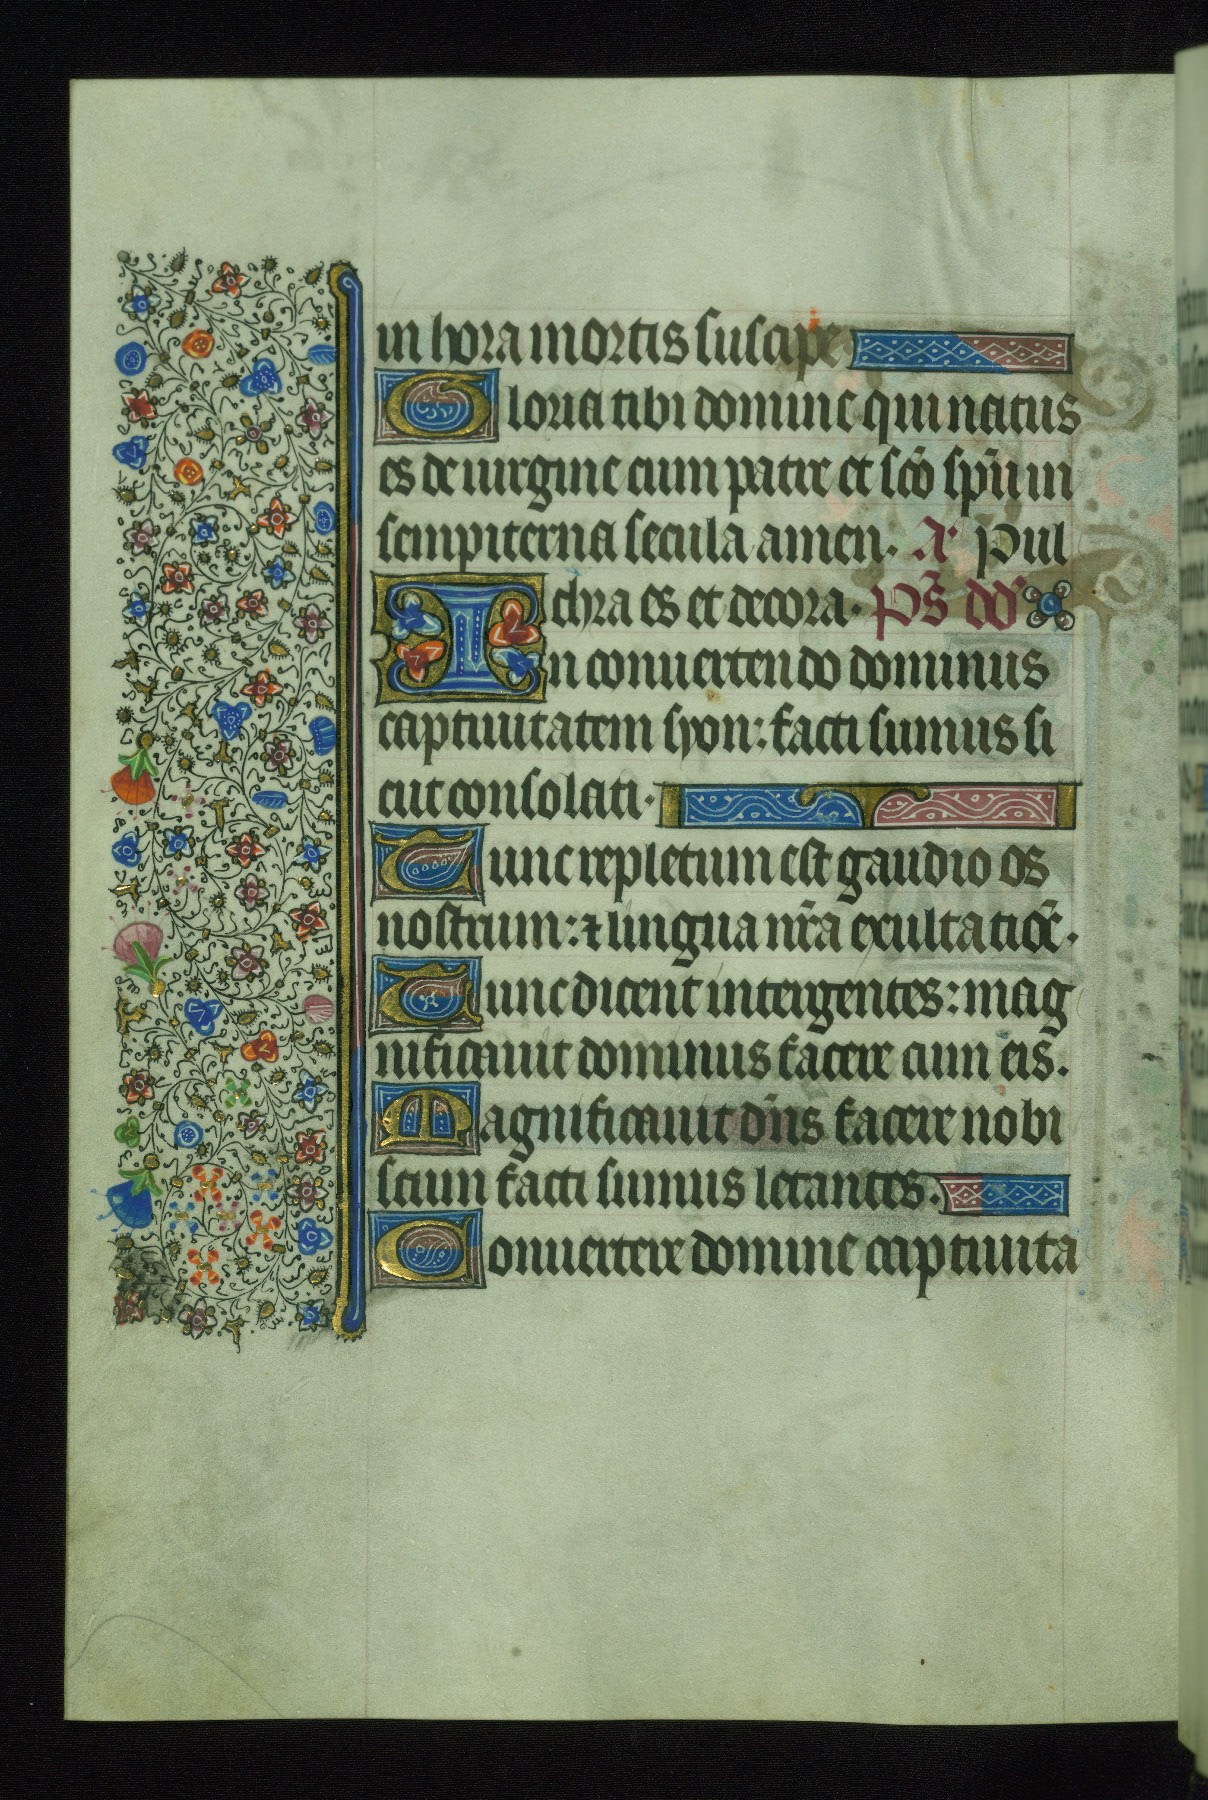 in hora mortis suscipe
Gloria tibi domine qui natus
es de uirgine cum patre et sc̄o sp̄u in
sempiterna secula amen. A. Pul
chra es et decora. Ps̄ dd̄
In conuertendo dominus
captiuitatem syon: facti sumus si
cut consolati.
Tunc repletum est gaudio os
nostrum: ⁊ lingua nr̄a exultatiōe.
Tunc dicent inter gentes: mag
nificauit dominus facere cum eis.
Magnificauit dn̄s facere nobi
scum facti sumus letantes.
Conuertere domine captiuita